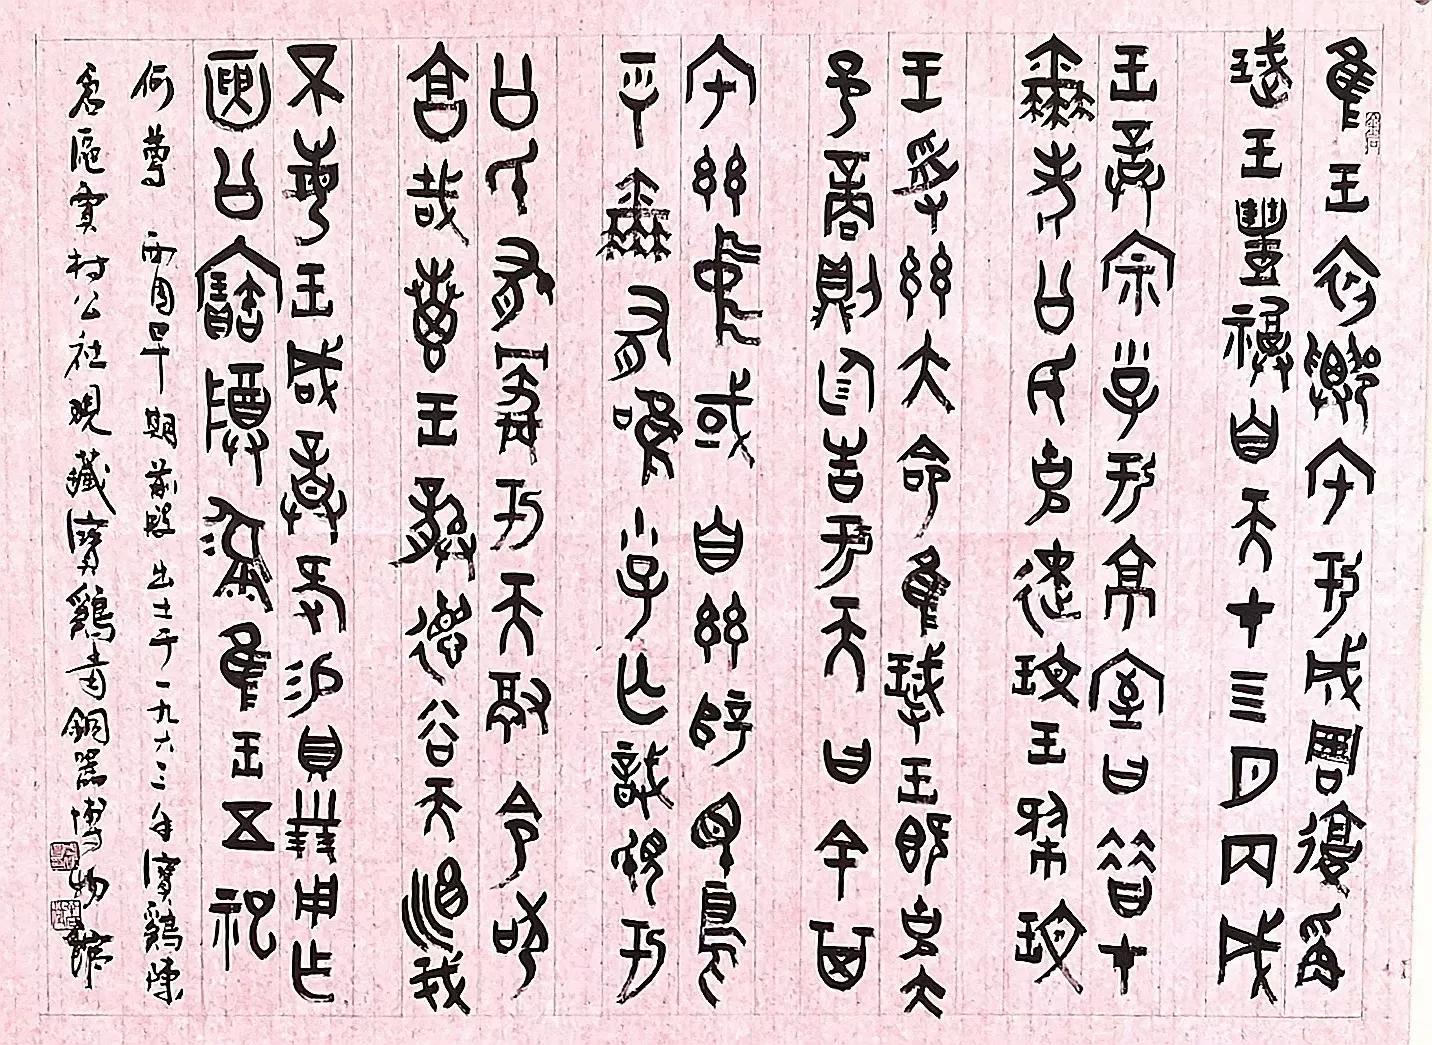 隹王初遷宅于成周復爯
珷王豐祼自天才亖月丙戌
王誥宗小子于京室曰昔才
爾考公氏克逨玟王肆玟
王受茲大命隹珷王既克大
邑商則廷告于天曰余其
宅茲中或自茲乂民烏
乎爾有唯小子亡識視于
公氏有爵于天徹令苟
享哉叀王恭德谷天訓我
不敏王咸誥何易貝卅朋用乍
庾公寶尊彝隹王五祀
何尊 西周早期前段 出土于一九六三年寶鷄陳
倉區賈村公社現藏寶鷄青銅器博物館